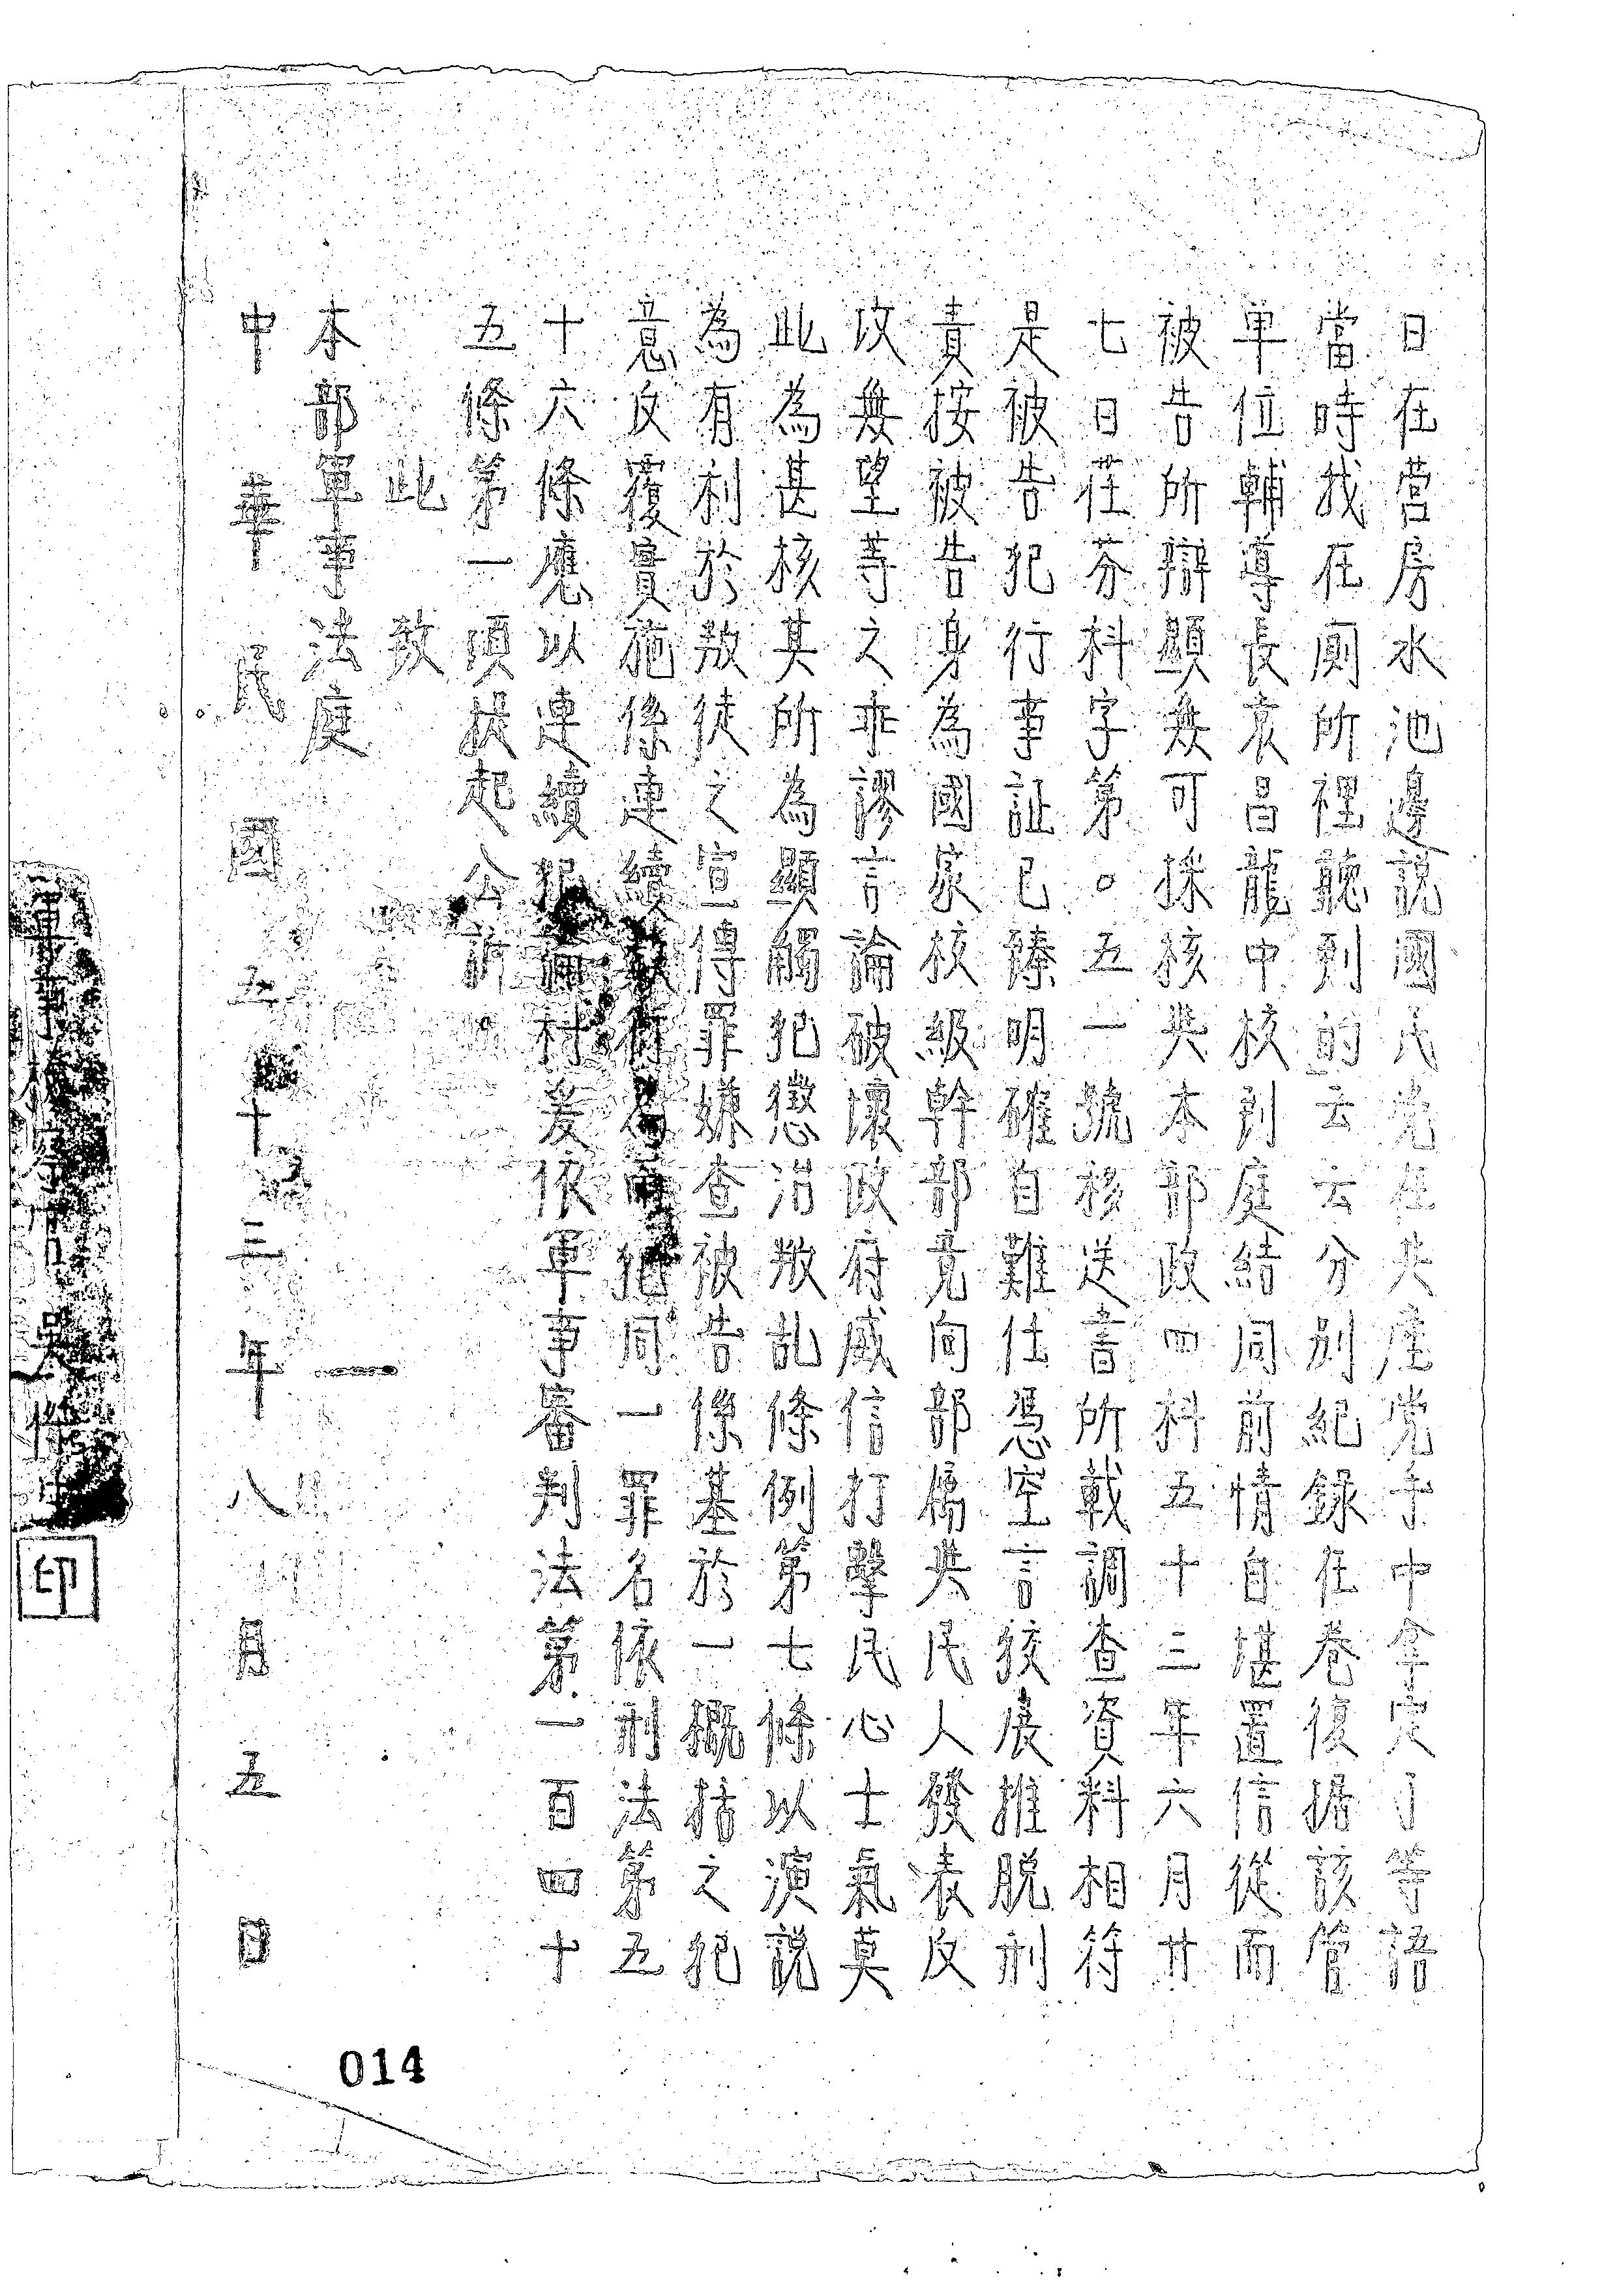 日在营房水池邊說國民党在共產党手中拿定了等語
當時我在厠所裡聽到的云云分別紀錄在卷復据該管
单位輔導長袁昌龍中核到庭結同前情自堪置信從而
被告所辯顯無可採核共本部政四科五十三年六月廿
七日荏芬科字第。五一號移送書所載調查資料相符
是被告犯行事証已臻明確自難仕憑空言狡展推脱刑
責按被告身為國家校級幹部竟向部屬共民人發表反
攻無望等之乖謬言論破壞政府威信打擊民心士氣莫
此為甚核其所為顯觸犯懲治叛乱條例第七條以演説
為有利於叛徒之宣傳罪嫌查被告係基於一概括之犯
意反覆實施係連續 行為 犯同一罪名依刑法第五
十六條應以連續犯論科爰依軍事審判法第一百四十
五條第一項提起公訴。
此致
本部軍事法庭
中華民國五十三年八月五日
印
014